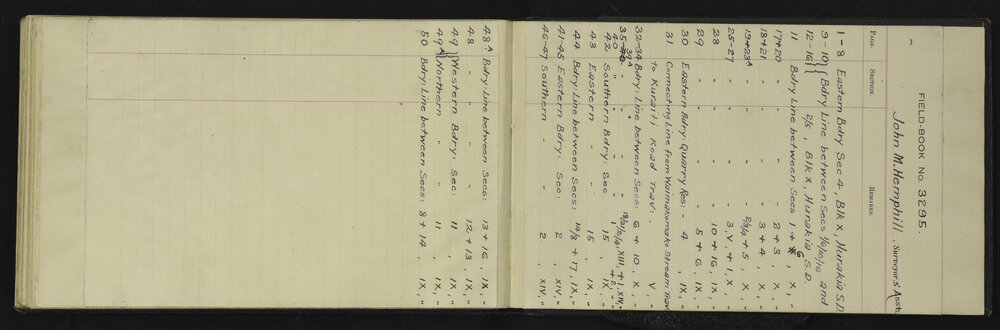 FIELD-BOOK No. 3295.
John M. Hemphill, Surveyors' Asst.
PAGE. SECTION. REMARKS.
1-8 Eastern Bdry Sec 4, Blk X, Hurakia S.D
9-10 Bdry Line between Secs and
12-16 2/5, Blk X, Hurakia S.D.
11 Bdry Line between Secs 1 + 6 X, "
17+20 " " " 2+3, X, "
18+21 " " " 3+4, X, "
19+23A " " " 2/3/4+5, X, "
25-27 " " " 3, V+1, X, "
28 " " " 10+16, IX, "
29 " " " 5+6, IX, "
30 Eastern Bdry: Quarry Res:- 4, IX, "
31 Connecting Line from Waimakomako Stream Trav
to Kuraiti Road Trav: V "
32-34 Bdry: Line between Secs: 6+10, X, "
39A
35-40 " " " XIII, +1, XIV, "
40 " " "
42 Southern Bdry: Sec 15 IX "
43 Eastern " " 15 IX, "
44 Bdry: Line between Secs: 14/8+17, IX, "
41-45 Eastern Bdry: Sec: 2, XIV, "
46-47 Southern " " 2, XIV, "
48A Bdry: Line between Secs: 13+16, IX, "
48 " " " 12+13, IX, "
49 Western Bdry: Sec: 11, IX, "
49A Northern " " 11, IX, "
50 Bdry: Line between Secs: 8+14, IX, "